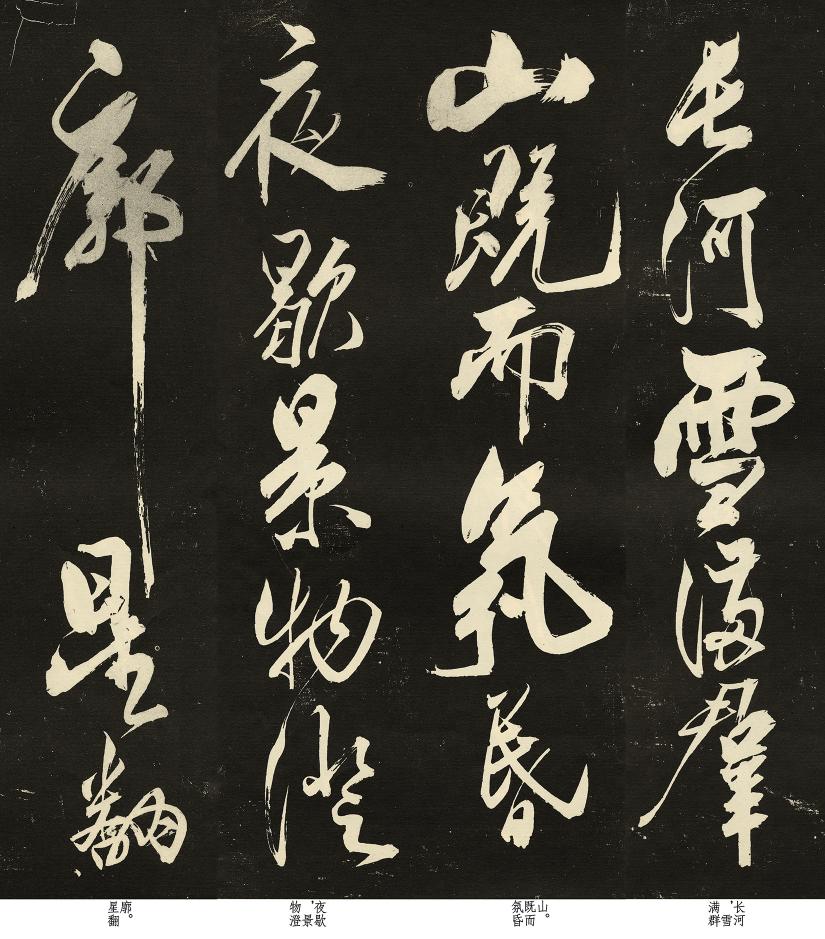 長河雪滿羣
山既而氛昏
夜歇景物澄
廓星翻
长河，雪满群
山。既而氛昏
夜歇，景物澄
廓。星翻